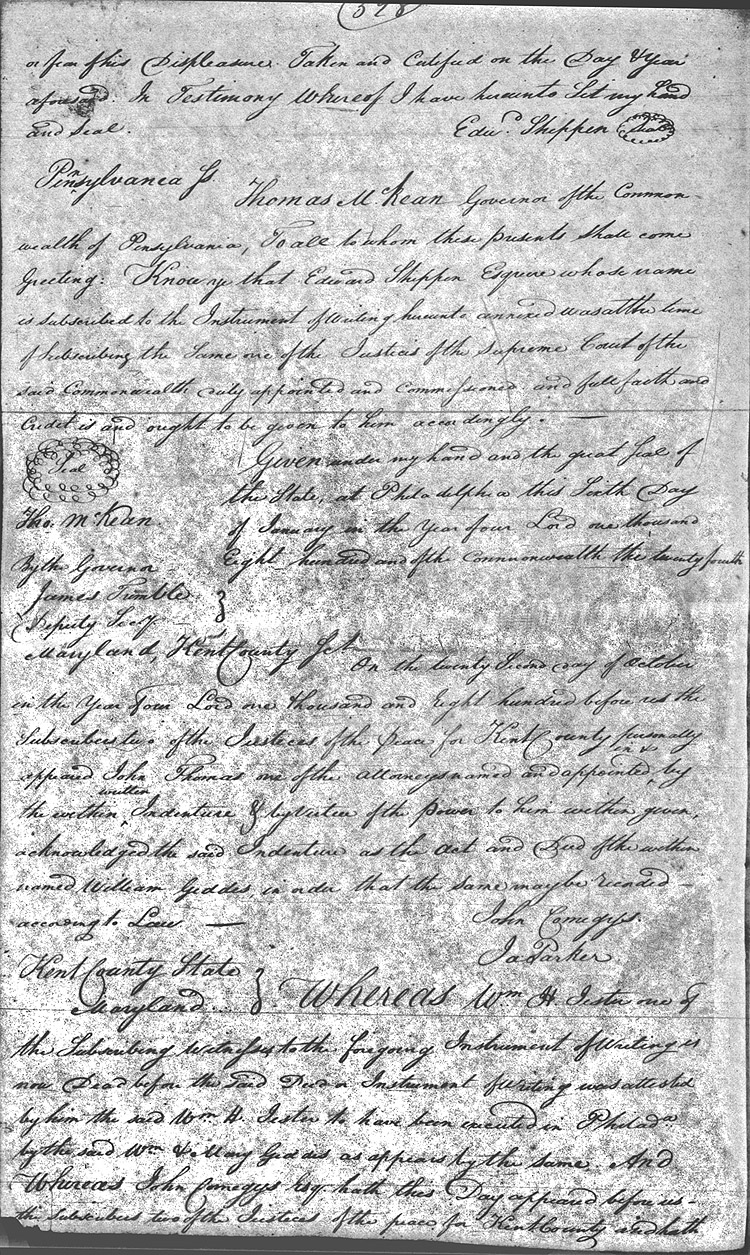 528
or fear of his Displeasure. Taken and Certified on the Day & Year
aforesaid. In Testimony Whereof I have hereunto Set my hand
and Seal. Edwd. Shippen Seal
Pensylvanea Ss.
Thomas McKean Governor of the Common-
wealth of Pensylvania, To all to whom these presents shall come
Greeting: Know ye that Edward Shippen Esquire whose name
is subscribed to the Instrument of Writing hereunto annexed was at the time
of Subscribing the Same one of the Justices of the Supreme Court of the
said Commonwealth duly appointed and commissioned and full faith and
Credit is and ought to be given to him accordingly.
Given under my hand and the great Seal of
the State, at Philadelphia this Sixth Day
of January in the Year of our Lord one thousand
Eight hundred and of the Commonwealth the twenty fourth
Seal
Tho. McKean.
By the Governor
James Trimble
Deputy Secy
Maryland, Kent County Sct
On the twenty Second day of October
in the Year of our Lord one thousand and Eight hundred before us the
Subscribers two of the Justices of the peace for Kent County personally
appeared John Thomas one of the attorneys named and appointed in & by
the within written Indenture & by Virtue of the power to him within given,
acknowledged the said Indenture as the Act and Deed of the within
named William Geddes in order that the same may be recorded
according to Law. John Comegys.
Ja Parker
Kent County State
Maryland.... Whereas Wm H. Jester one of
the Subscribing Witnesses to the foregoing Instrument of Writing is
now Dead before the said Deed or Instrument of Writing was attested
by him the said Wm H. Jester to have been executed in Philada
by the said Wm & Mary Geddes as appears by the same And
Whereas John Comegys Esq. hath this Day appeared before us
the Subscribers two of the Justices of the peace for Kent County and hath